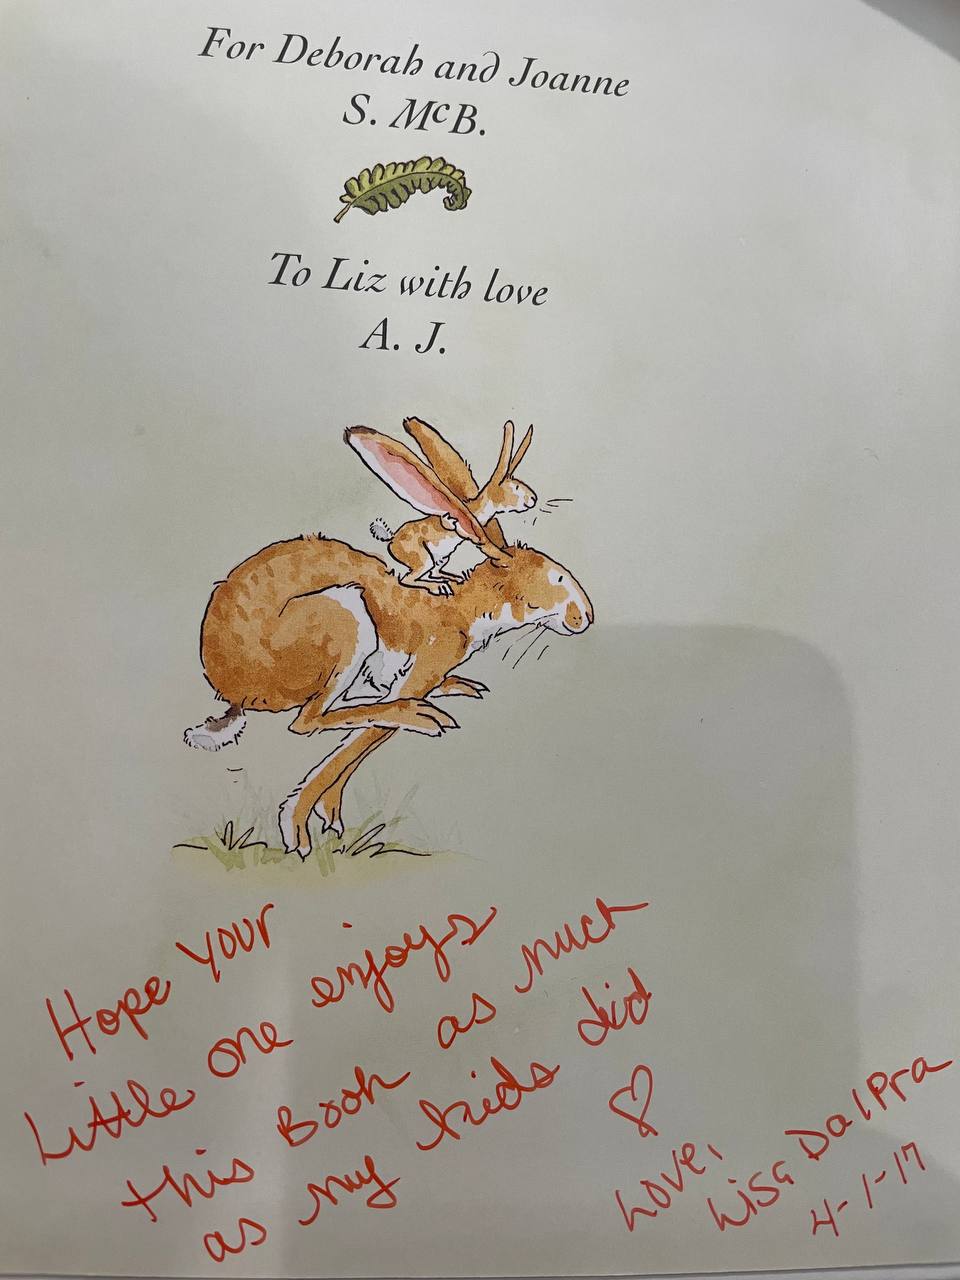 For Deborah and Joanne
S. McB.
To Liz with love
A. J.
Hope your
Little one enjoys
this Book as much
as my kids did
♡
Love,
Lisa DalPra
4-1-17